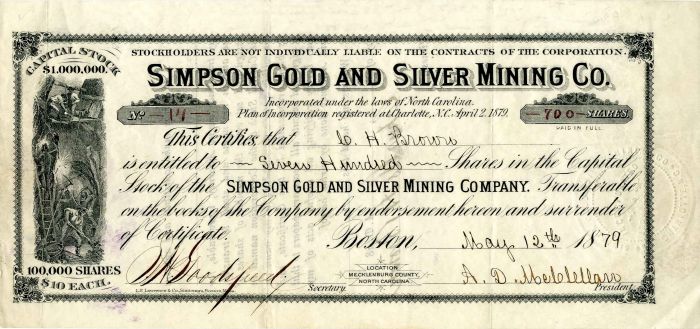 CAPITAL STOCK
$1,000,000.
STOCKHOLDERS ARE NOT INDIVIDUALLY LIABLE ON THE CONTRACTS OF THE CORPORATION.
SIMPSON GOLD AND SILVER MINING CO.
Incorporated under the laws of North Carolina.
Plan of Incorporation registered at Charlotte, N.C. April 2, 1879.
No 14
700 SHARES
PAID IN FULL
This Certifies that C. H. Brown
is entitled to Seven Hundred Shares in the Capital
Stock of the SIMPSON GOLD AND SILVER MINING COMPANY. Transferable
on the books of the Company by endorsement hereon and surrender
of Certificate. Boston, May 12th 1879
100,000 SHARES
$10 EACH.
LOCATION
MECKLENBURG COUNTY
NORTH CAROLINA
Goodspeed.
Secretary.
A. D. McClellan
President.